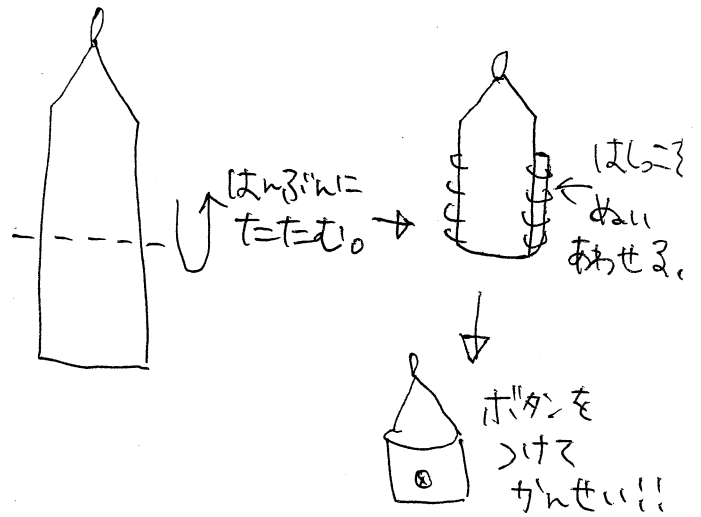 はんぶんに
たたむ。
はしっこを
ぬい
あわせる。
ボタンを
つけて
かんせい!!